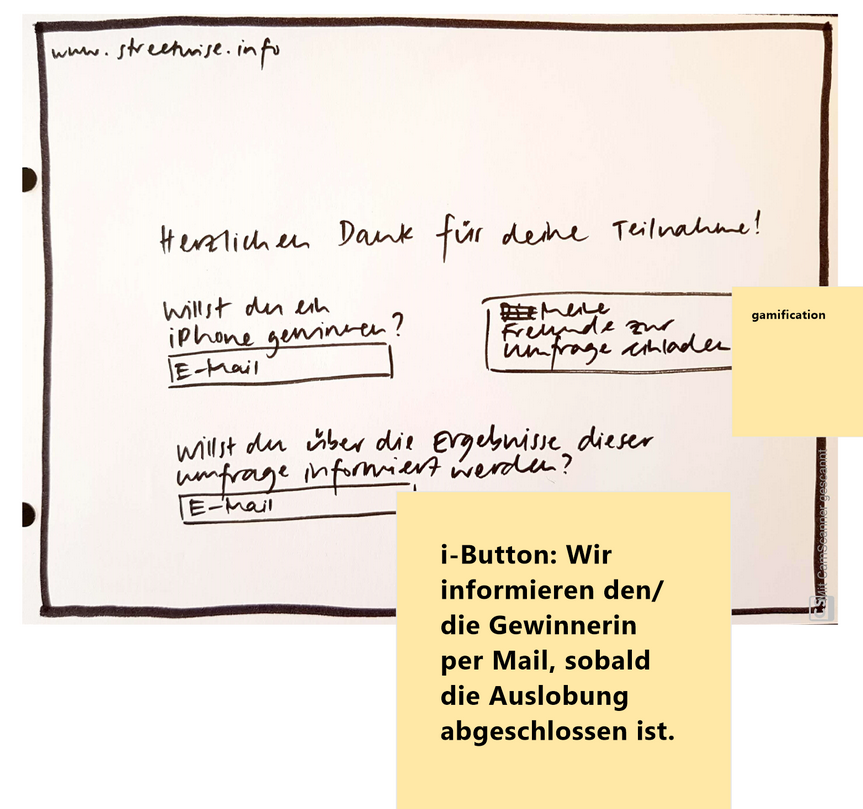 www.streetwise.info
Herzlichen Dank für deine Teilnahme!
Willst du ein
iPhone gewinnen?
E-Mail
meine
Freunde zur
Umfrage einladen
gamification
Willst du über die Ergebnisse dieser
Umfrage informiert werden?
E-Mail
i-Button: Wir
informieren den/
die Gewinnerin
per Mail, sobald
die Auslobung
abgeschlossen ist.
Mit CamScanner gescannt
CS